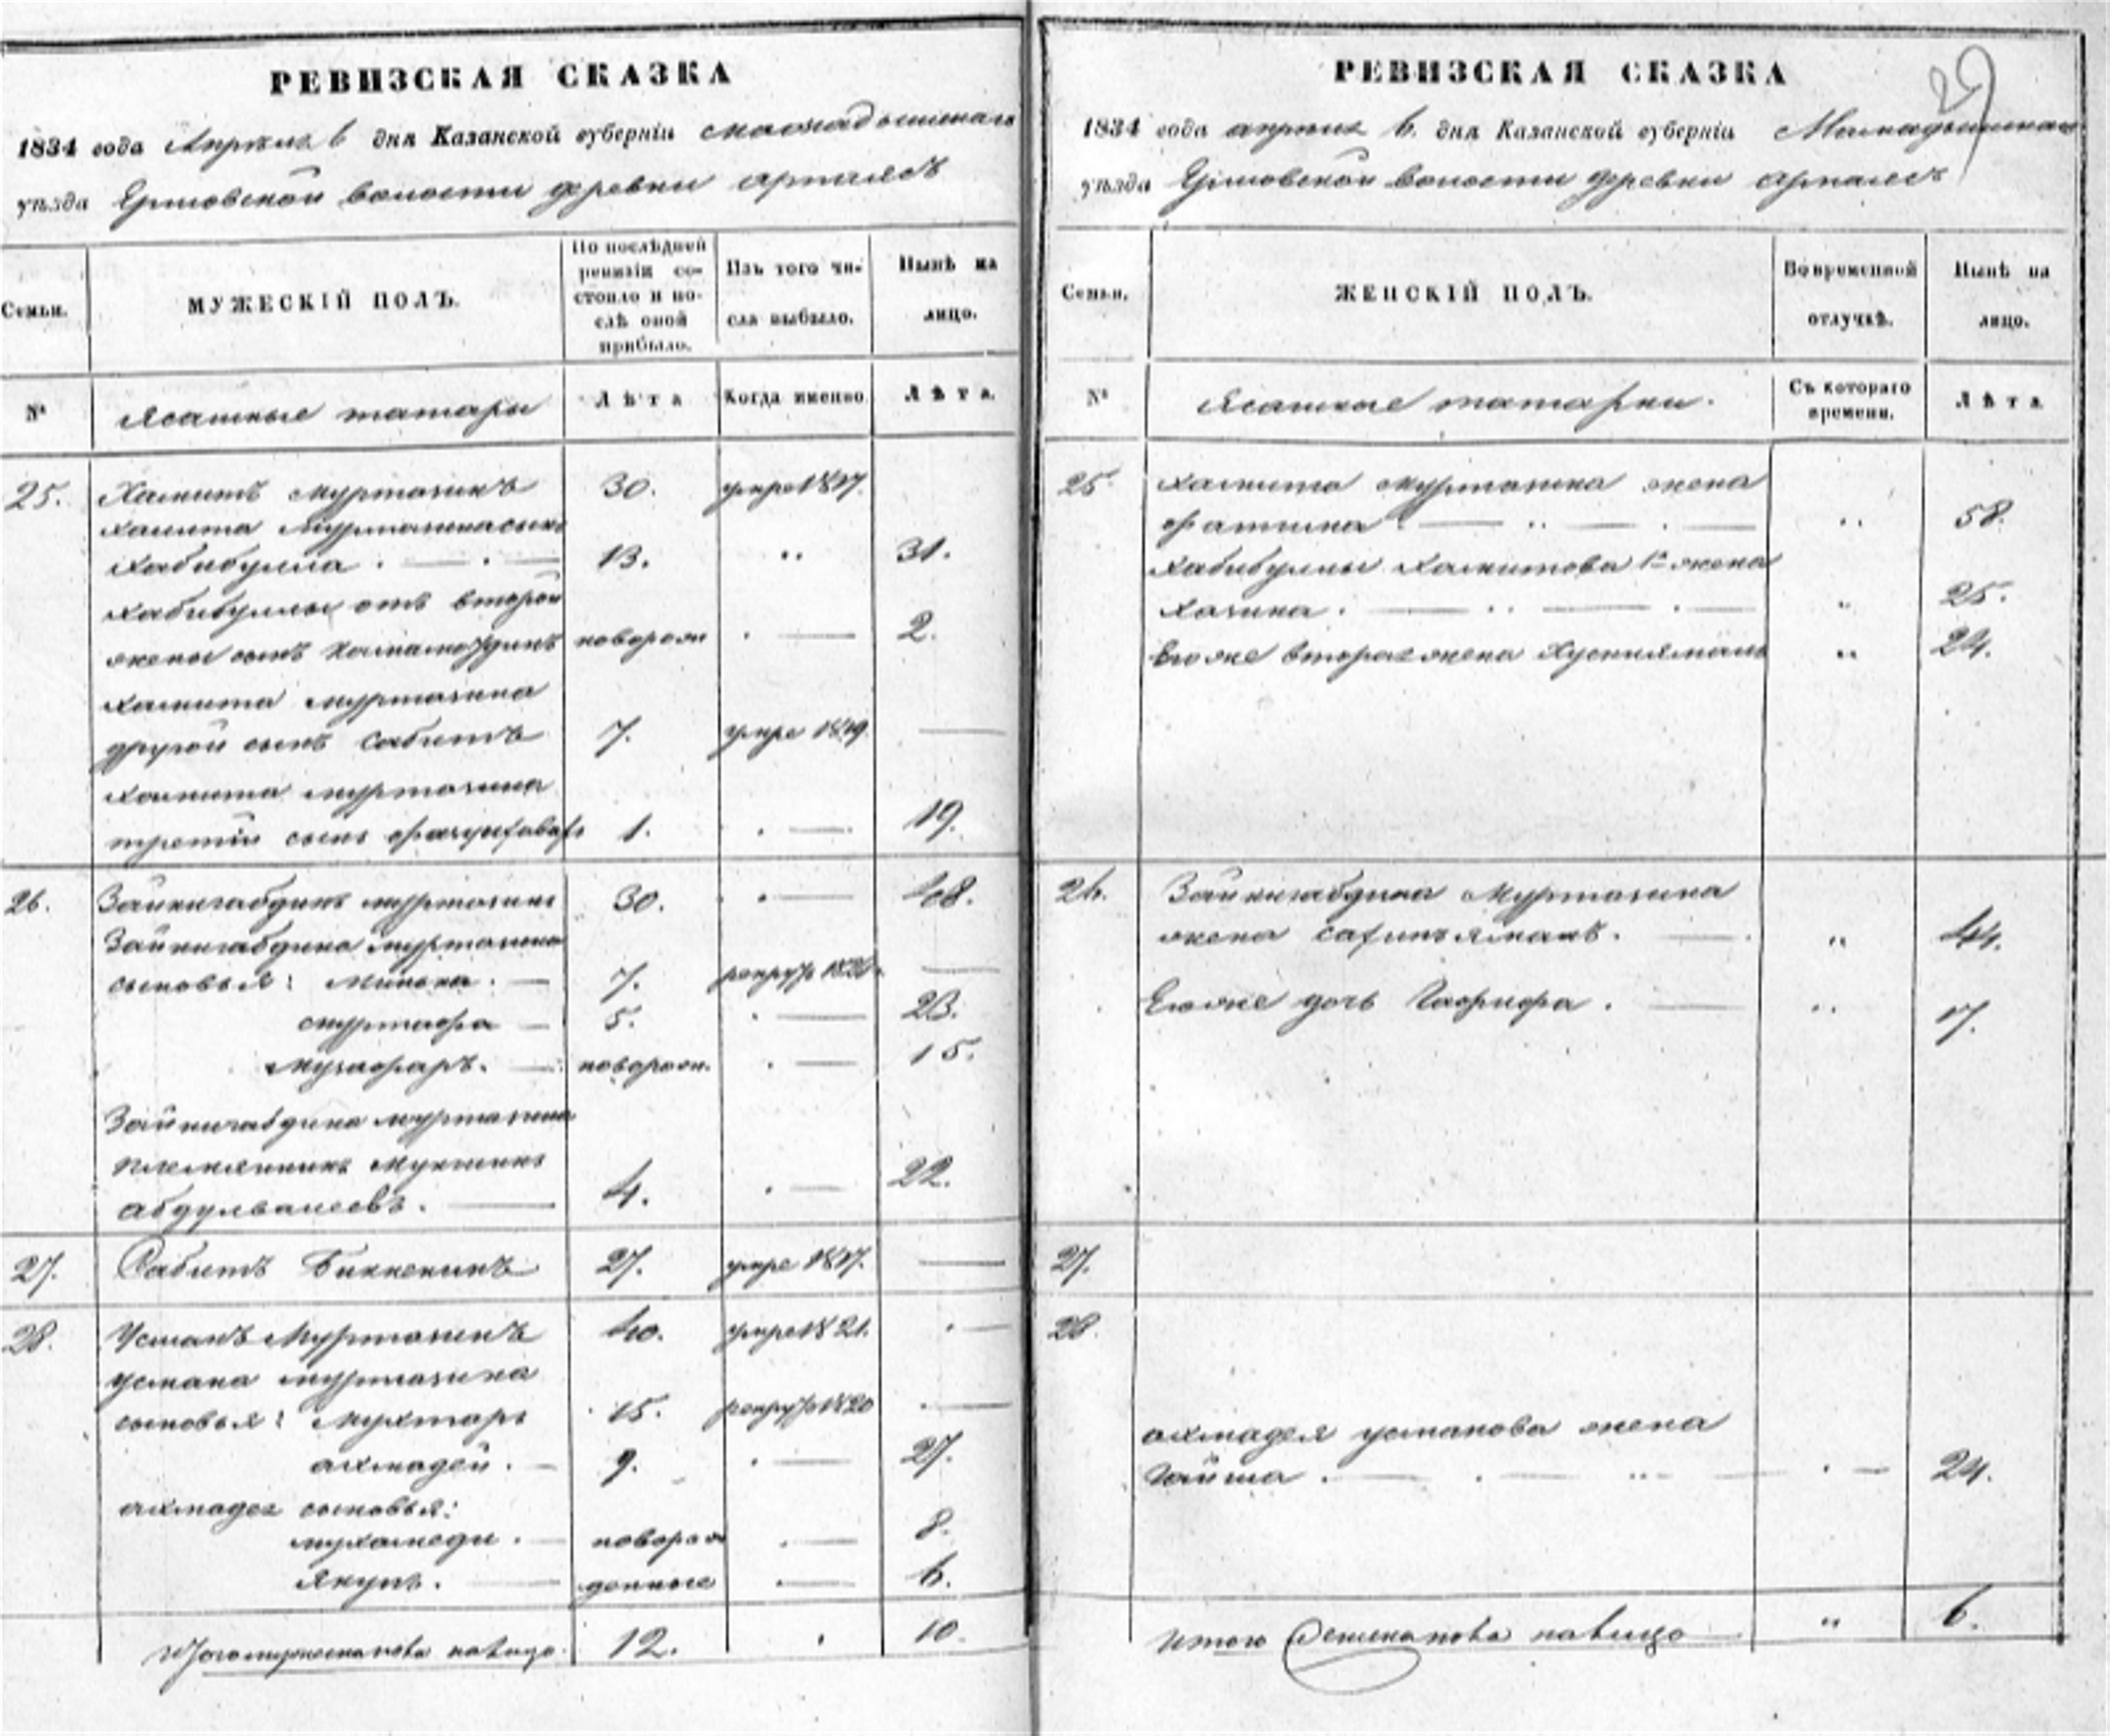 РЕВИЗСКАЯ СКАЗКА
1834 года Апреля 6 дня Казанской губернiи Мамадышскаго
уѣзда волости деревни
Семьи.
МУЖЕСКIЙ ПОЛЪ.
По послѣдней ревизiи состояло и послѣ оной прибыло.
Изъ того числа выбыло.
Нынѣ на лицо.
№
Ясашные татары
Лѣта
Когда именно
Лѣта.
25. Хамитъ Муртазинъ 30. умре 1817.
Хамита Муртазина сынъ
Хабибулла . 13. 31.
Хабибуллы отъ второй
жены сынъ новорож 2.
Хамита Муртазина
другой сынъ Сабитъ 7. умре 1819.
Хамита Муртазина
третiй сынъ 1. 19.
26. Зайнигабдинъ Муртазинъ 30. 48.
Зайнигабдина Муртазина
сыновья: Минька . 7. рекрут
Муртафа 5. 23.
Музафаръ. новорож. 15.
Зайнигабдина Муртазина
племянникъ Мукминъ
Абдулвалеевъ. 4. 22.
27. Сабитъ Биккенинъ 27. умре 1817.
28. Усманъ Муртазинъ 40. умре 1821.
Усмана Муртазина
сыновья: Мухтаръ 15. рекрут 1820
Ахмадей. 9. 27.
Ахмадея сыновья:
Мухамеди. новорож 8.
Якупъ. денные 6.
Итого мужеска пола на лицо 12. 10.
РЕВИЗСКАЯ СКАЗКА
29
1834 года апреля 6. дня Казанской губернiи Мамадышскаго
уѣзда волости деревни
Семьи.
ЖЕНСКIЙ ПОЛЪ.
Во временной отлучкѣ.
Нынѣ на лицо.
№
Ясашные татарки.
Съ котораго времени.
Лѣта
25. Хамита Муртазина жена
Фатима 58.
Хабибуллы Хамитова 1я жена
Хазина. 25.
Его же вторая жена Хусниямалъ 24.
26. Зайнигабдина Муртазина
жена 44.
Его же дочь Гафифа. 17.
27.
28.
Ахмадея Усманова жена
Гайша. 24.
Итого женска пола на лицо 6.